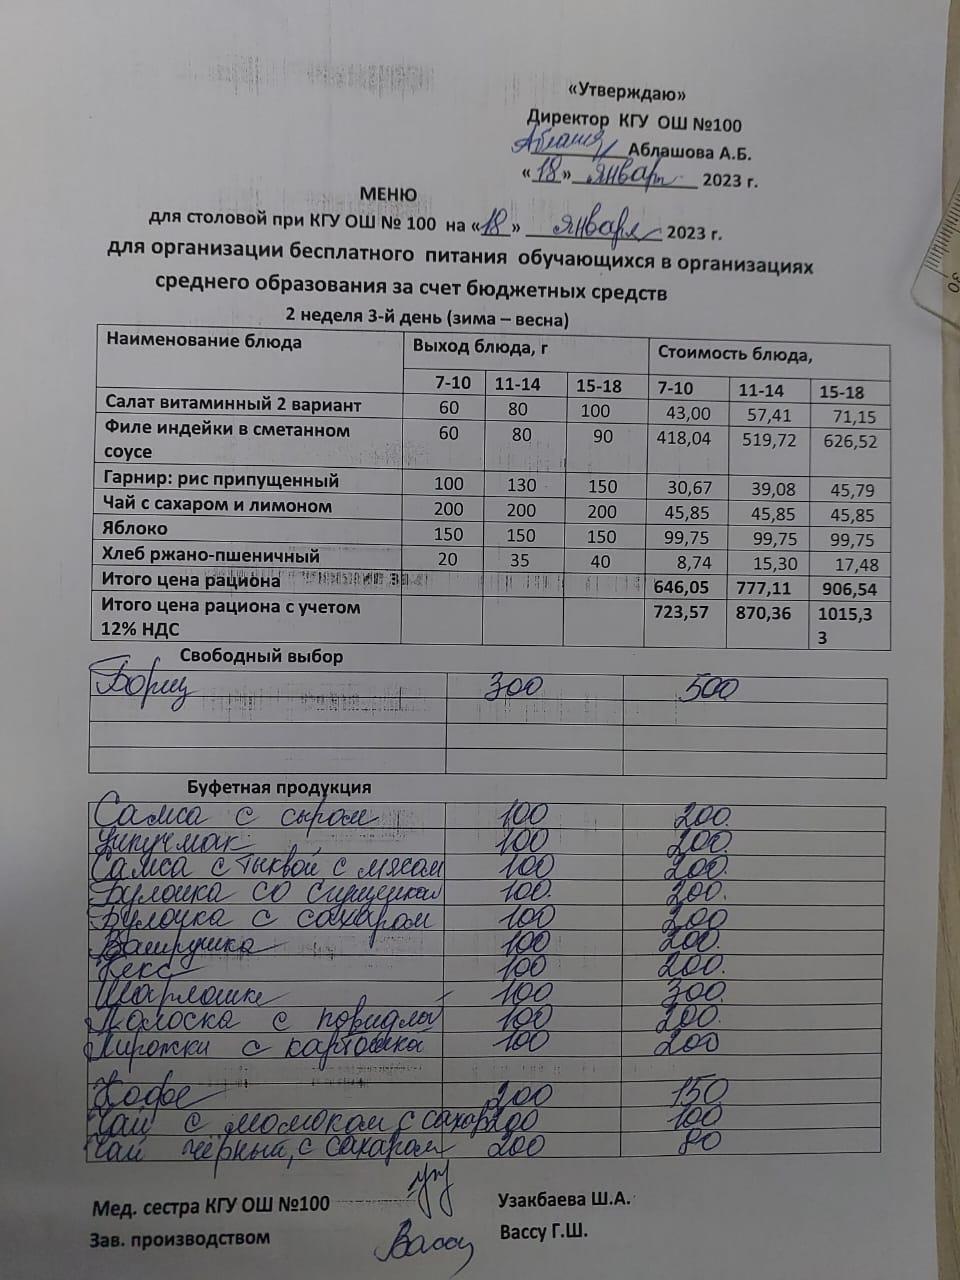 «Утверждаю»
Директор КГУ ОШ №100
Аблашова А.Б.
«18» январь 2023 г.
МЕНЮ
для столовой при КГУ ОШ № 100 на «18» января 2023 г.
для организации бесплатного питания обучающихся в организациях
среднего образования за счет бюджетных средств
2 неделя 3-й день (зима – весна)
Наименование блюда Выход блюда, г Стоимость блюда,
7-10 11-14 15-18 7-10 11-14 15-18
Салат витаминный 2 вариант 60 80 100 43,00 57,41 71,15
Филе индейки в сметанном 60 80 90 418,04 519,72 626,52
соусе
Гарнир: рис припущенный 100 130 150 30,67 39,08 45,79
Чай с сахаром и лимоном 200 200 200 45,85 45,85 45,85
Яблоко 150 150 150 99,75 99,75 99,75
Хлеб ржано-пшеничный 20 35 40 8,74 15,30 17,48
Итого цена рациона 646,05 777,11 906,54
Итого цена рациона с учетом 723,57 870,36 1015,3
12% НДС 3
Свободный выбор
Борщ 300 500
Буфетная продукция
Самса с сыром 100 200.
100 200.
Самса с тыквой с мясом 100 200.
Булочка со 100. 200.
Булочка с сахаром 100 200
Ватрушка 100 200.
Кекс 100 200.
100 300.
Полоска с 100 200.
Пирожки с 100 200
Кофе 200 150
Чай с молоком с 200 100
Чай чёрный, с сахаром 200 80
Мед. сестра КГУ ОШ №100 Узакбаева Ш.А.
Зав. производством Вассу Вассу Г.Ш.
30